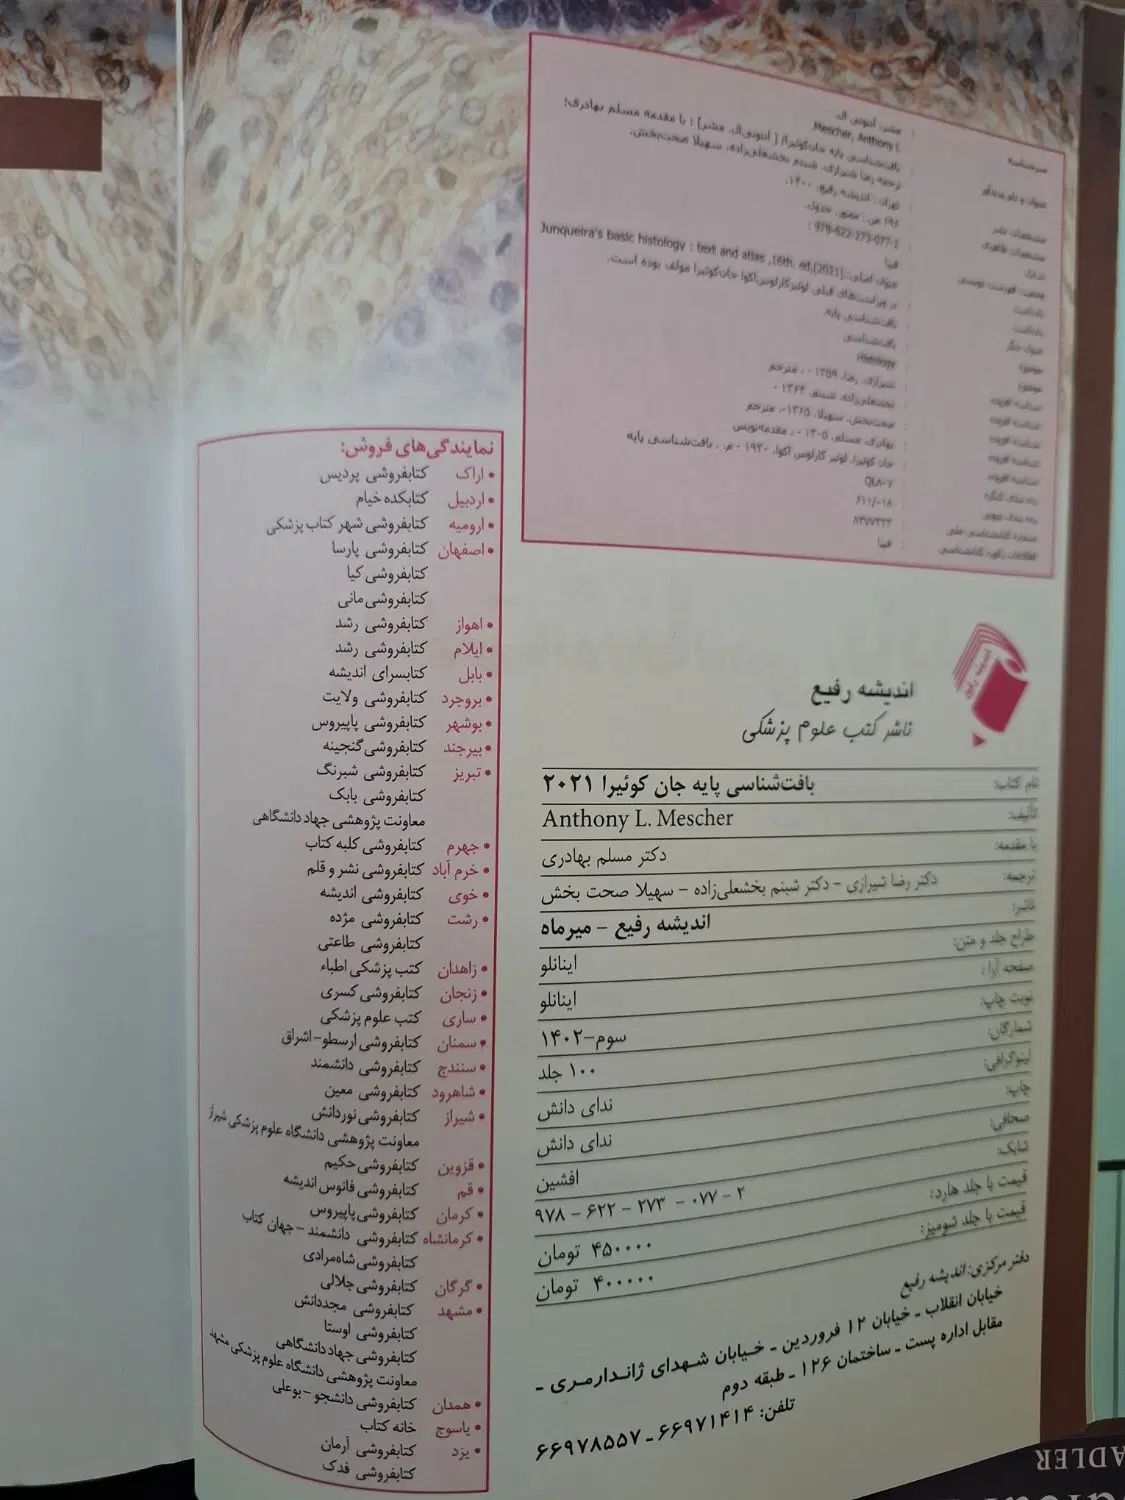 سرشناسه : مشر، آنتونی ال.
Mescher, Anthony L.
عنوان و نام پدیدآور : بافت‌شناسی پایه جان‌کوئیرا/ [ آنتونی‌ال. مشر] ؛ با مقدمه مسلم بهادری؛
ترجمه رضا شیرازی، شبنم بخشعلی‌زاده، سهیلا صحت‌بخش.
مشخصات نشر : تهران : اندیشه رفیع، ۱۴۰۰.
مشخصات ظاهری : ص.: مصور، جدول.
شابک : 978-622-273-077-
وضعیت فهرست نویسی : فیپا
یادداشت : عنوان اصلی: Junqueira's basic histology : text and atlas ,16th. ed,[2021].
یادداشت : در ویراست‌های قبلی لوئیزکارلوس‌اکوا جان‌کوئیرا مولف بوده است.
عنوان دیگر : بافت‌شناسی پایه.
موضوع : بافت‌شناسی
موضوع : Histology
شناسه افزوده : شیرازی، رضا، ۱۳۵۹ - ، مترجم
شناسه افزوده : بخشعلی‌زاده، شبنم، ۱۳۶۴ -
شناسه افزوده : صحت‌بخش، سهیلا، ۱۳۶۵-، مترجم
شناسه افزوده : بهادری، مسلم، ۱۳۰۵ - ، مقدمه‌نویس
شناسه افزوده : جان کوئیرا، لوئیز کارلوس اکوا، ۱۹۲۰ - م. . بافت‌شناسی پایه
رده بندی کنگره : QL۸۰۷
رده بندی دیویی : ۶۱۱/۰۱۸
شماره کتابشناسی ملی : ۸۴۷۷۲۳۳
اطلاعات رکورد کتابشناسی : فیپا
اندیشه رفیع
اندیشه رفیع
ناشر کتب علوم پزشکی
نام کتاب: بافت‌شناسی پایه جان کوئیرا ۲۰۲۱
تألیف: Anthony L. Mescher
با مقدمه: دکتر مسلم بهادری
ترجمه: دکتر رضا شیرازی – دکتر شبنم بخشعلی‌زاده – سهیلا صحت بخش
ناشر: اندیشه رفیع – میرماه
طراح جلد و متن: اینانلو
صفحه آرا : اینانلو
نوبت چاپ: سوم–۱۴۰۲
شمارگان: ۱۰۰ جلد
لیتوگرافی: ندای دانش
چاپ: ندای دانش
صحافی: افشین
شابک: ۹۷۸ – ۶۲۲ – ۲۷۳ – ۰۷۷ – ۲
قیمت با جلد هارد: ۴۵۰۰۰۰ تومان
قیمت با جلد شومیز: ۴۰۰۰۰۰ تومان
دفتر مرکزی: اندیشه رفیع
خیابان انقلاب ـ خیابان ۱۲ فروردین ـ خـیابان شـهدای ژانـدارمـری ـ
مقابل اداره پست ـ ساختمان ۱۲۶ ـ طبقه دوم
تلفن: ۶۶۹۷۱۴۱۴ ـ ۶۶۹۷۸۵۵۷
نمایندگی‌های فروش:
• اراک کتابفروشی پردیس
• اردبیل کتابکده خیام
• ارومیه کتابفروشی شهر کتاب پزشکی
• اصفهان کتابفروشی پارسا
کتابفروشی کیا
کتابفروشی مانی
• اهواز کتابفروشی رشد
• ایلام کتابفروشی رشد
• بابل کتابسرای اندیشه
• بروجرد کتابفروشی ولایت
• بوشهر کتابفروشی پاپیروس
• بیرجند کتابفروشی گنجینه
• تبریز کتابفروشی شبرنگ
کتابفروشی بابک
معاونت پژوهشی جهاد دانشگاهی
• جهرم کتابفروشی کلبه کتاب
• خرم آباد کتابفروشی نشر و قلم
• خوی کتابفروشی اندیشه
• رشت کتابفروشی مژده
کتابفروشی طاعتی
• زاهدان کتب پزشکی اطباء
• زنجان کتابفروشی کسری
• ساری کتب علوم پزشکی
• سمنان کتابفروشی ارسطو–اشراق
• سنندج کتابفروشی دانشمند
• شاهرود کتابفروشی معین
• شیراز کتابفروشی نوردانش
معاونت پژوهشی دانشگاه علوم پزشکی شیراز
• قزوین کتابفروشی حکیم
• قم کتابفروشی فانوس اندیشه
• کرمان کتابفروشی پاپیروس
• کرمانشاه کتابفروشی دانشمند – جهان کتاب
کتابفروشی شاه‌مرادی
• گرگان کتابفروشی جلالی
• مشهد کتابفروشی مجددانش
کتابفروشی اوستا
کتابفروشی جهاد دانشگاهی
معاونت پژوهشی دانشگاه علوم پزشکی مشهد
• همدان کتابفروشی دانشجو – بوعلی
• یاسوج خانه کتاب
• یزد کتابفروشی آرمان
کتابفروشی فدک
ADLER